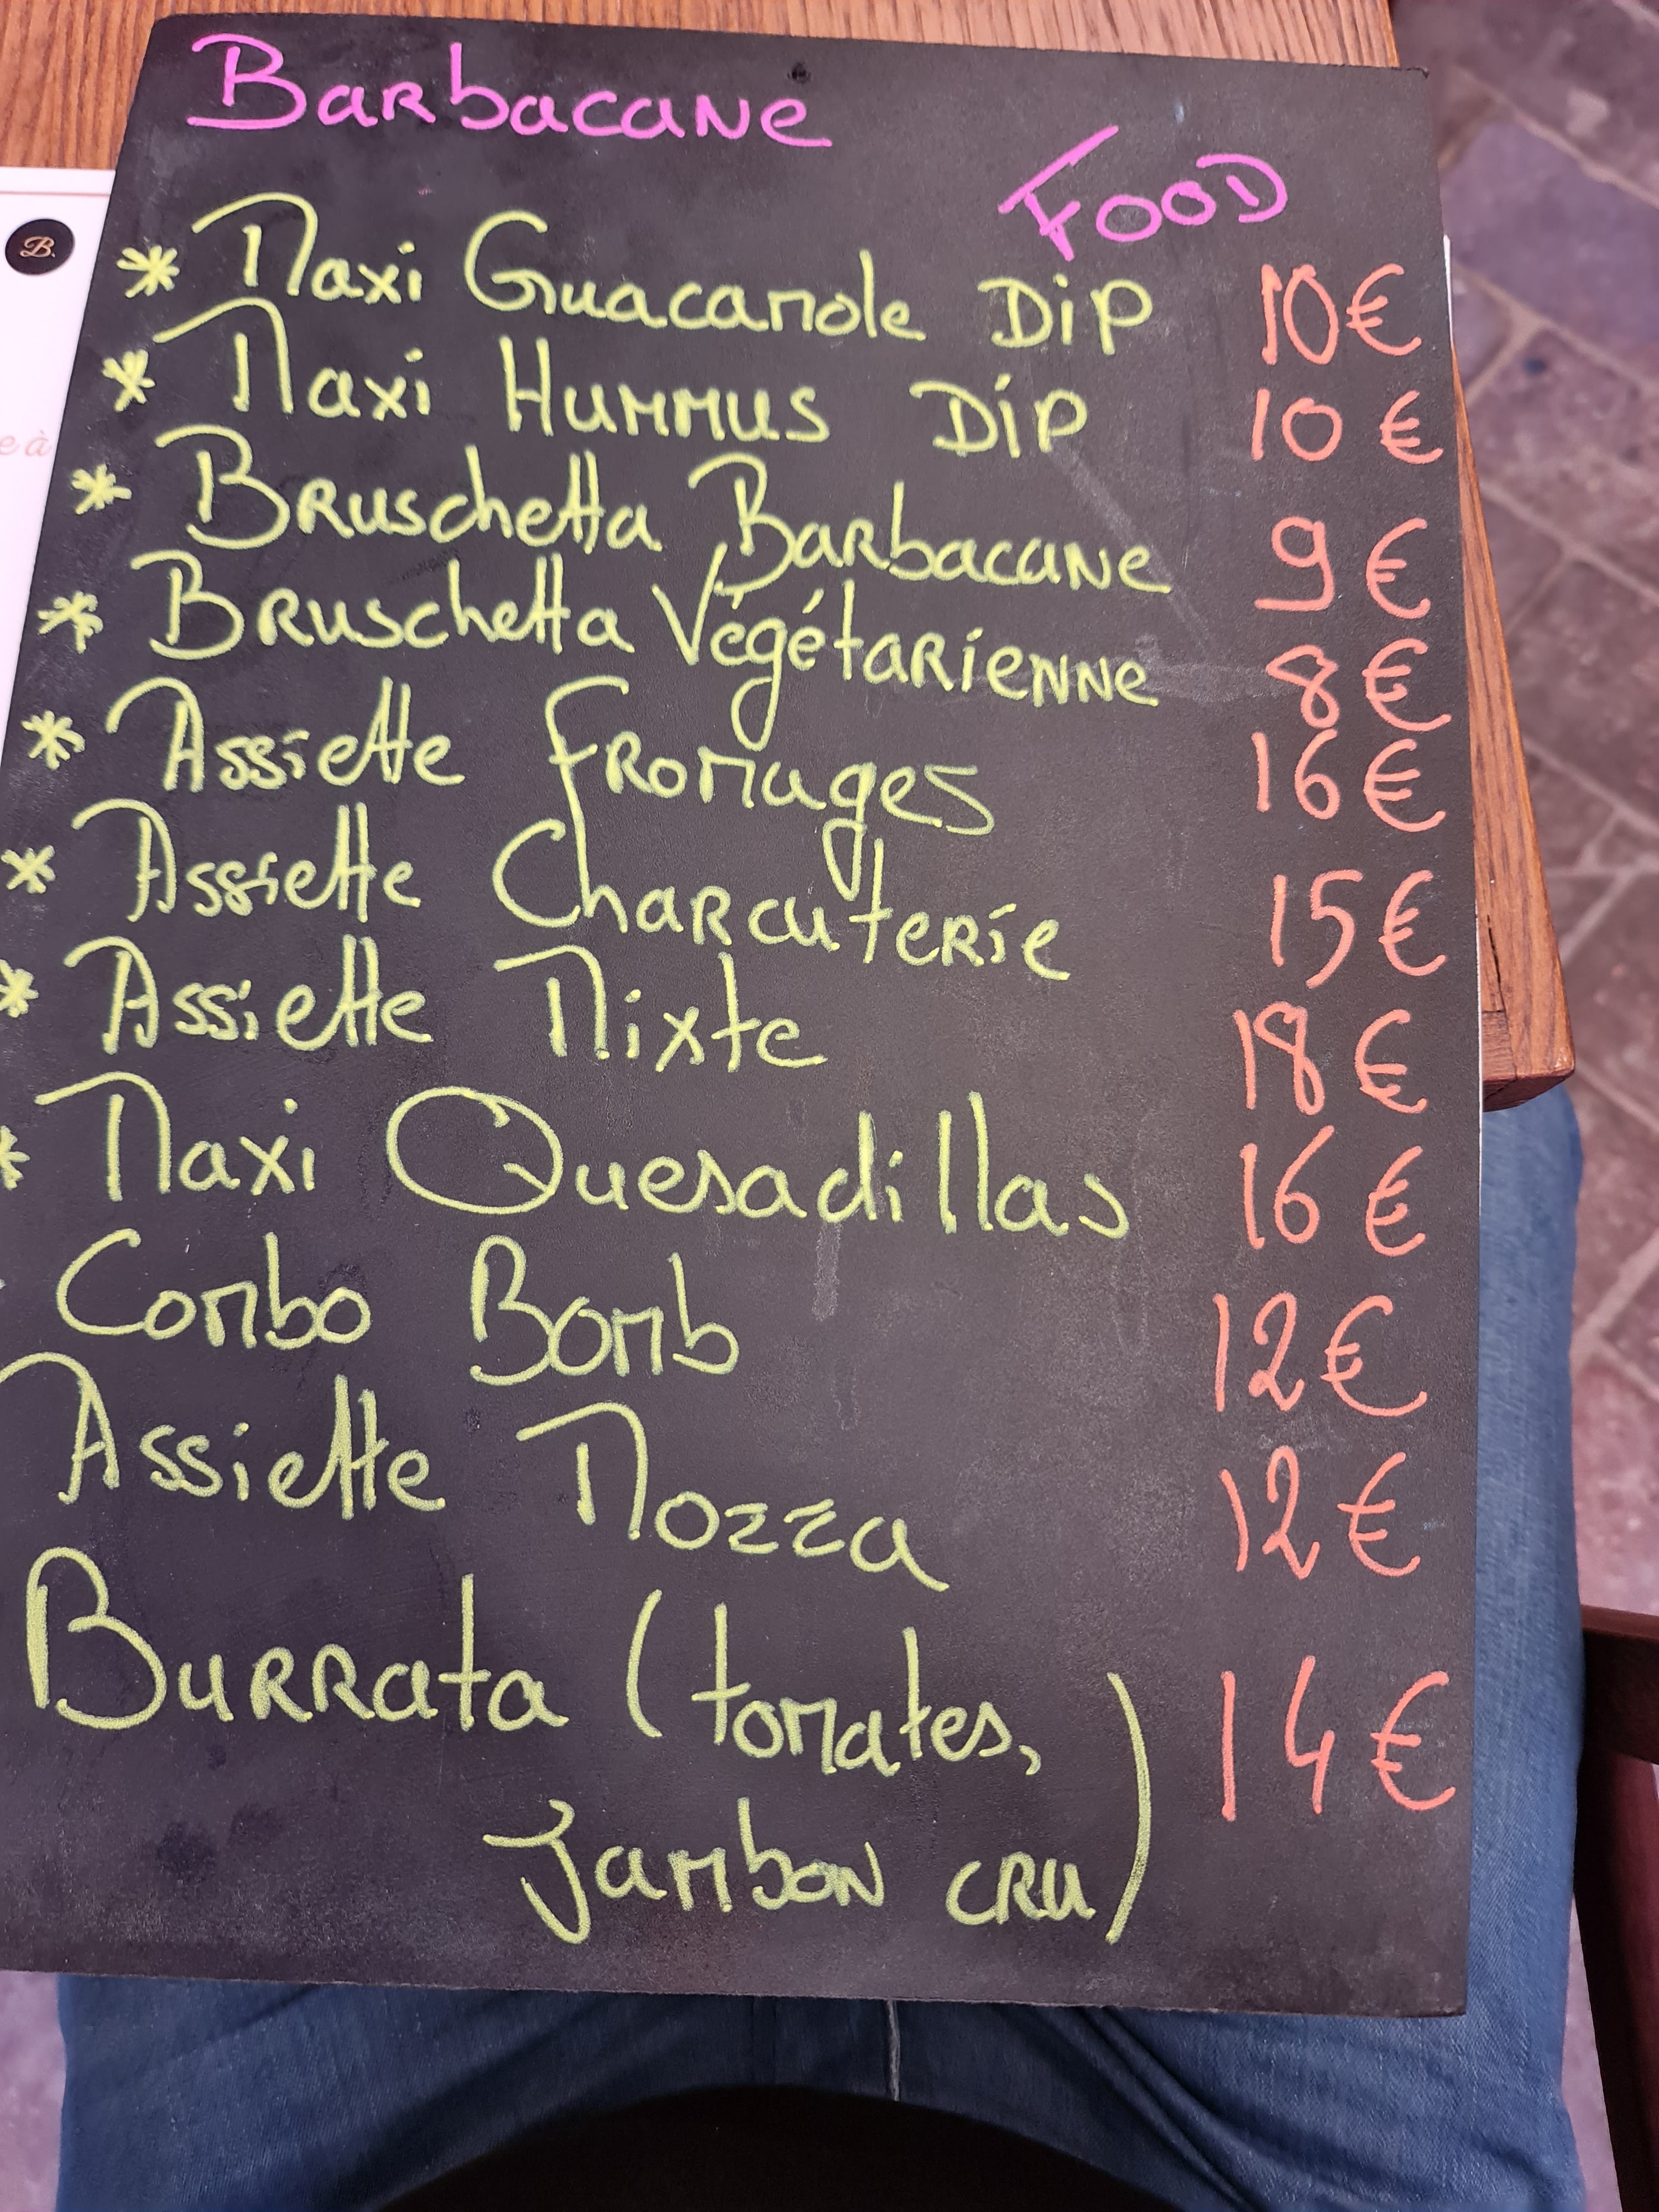 Barbacane
FOOD
* Maxi Guacamole Dip 10€
* Maxi Hummus Dip 10€
* Bruschetta Barbacane 9€
* Bruschetta Végétarienne 8€
* Assiette Fromages 16€
* Assiette Charcuterie 15€
* Assiette Mixte 18€
* Maxi Quesadillas 16€
Combo Bomb 12€
Assiette Mozza 12€
Burrata (tomates, 14€
Jambon cru)
B.
e à